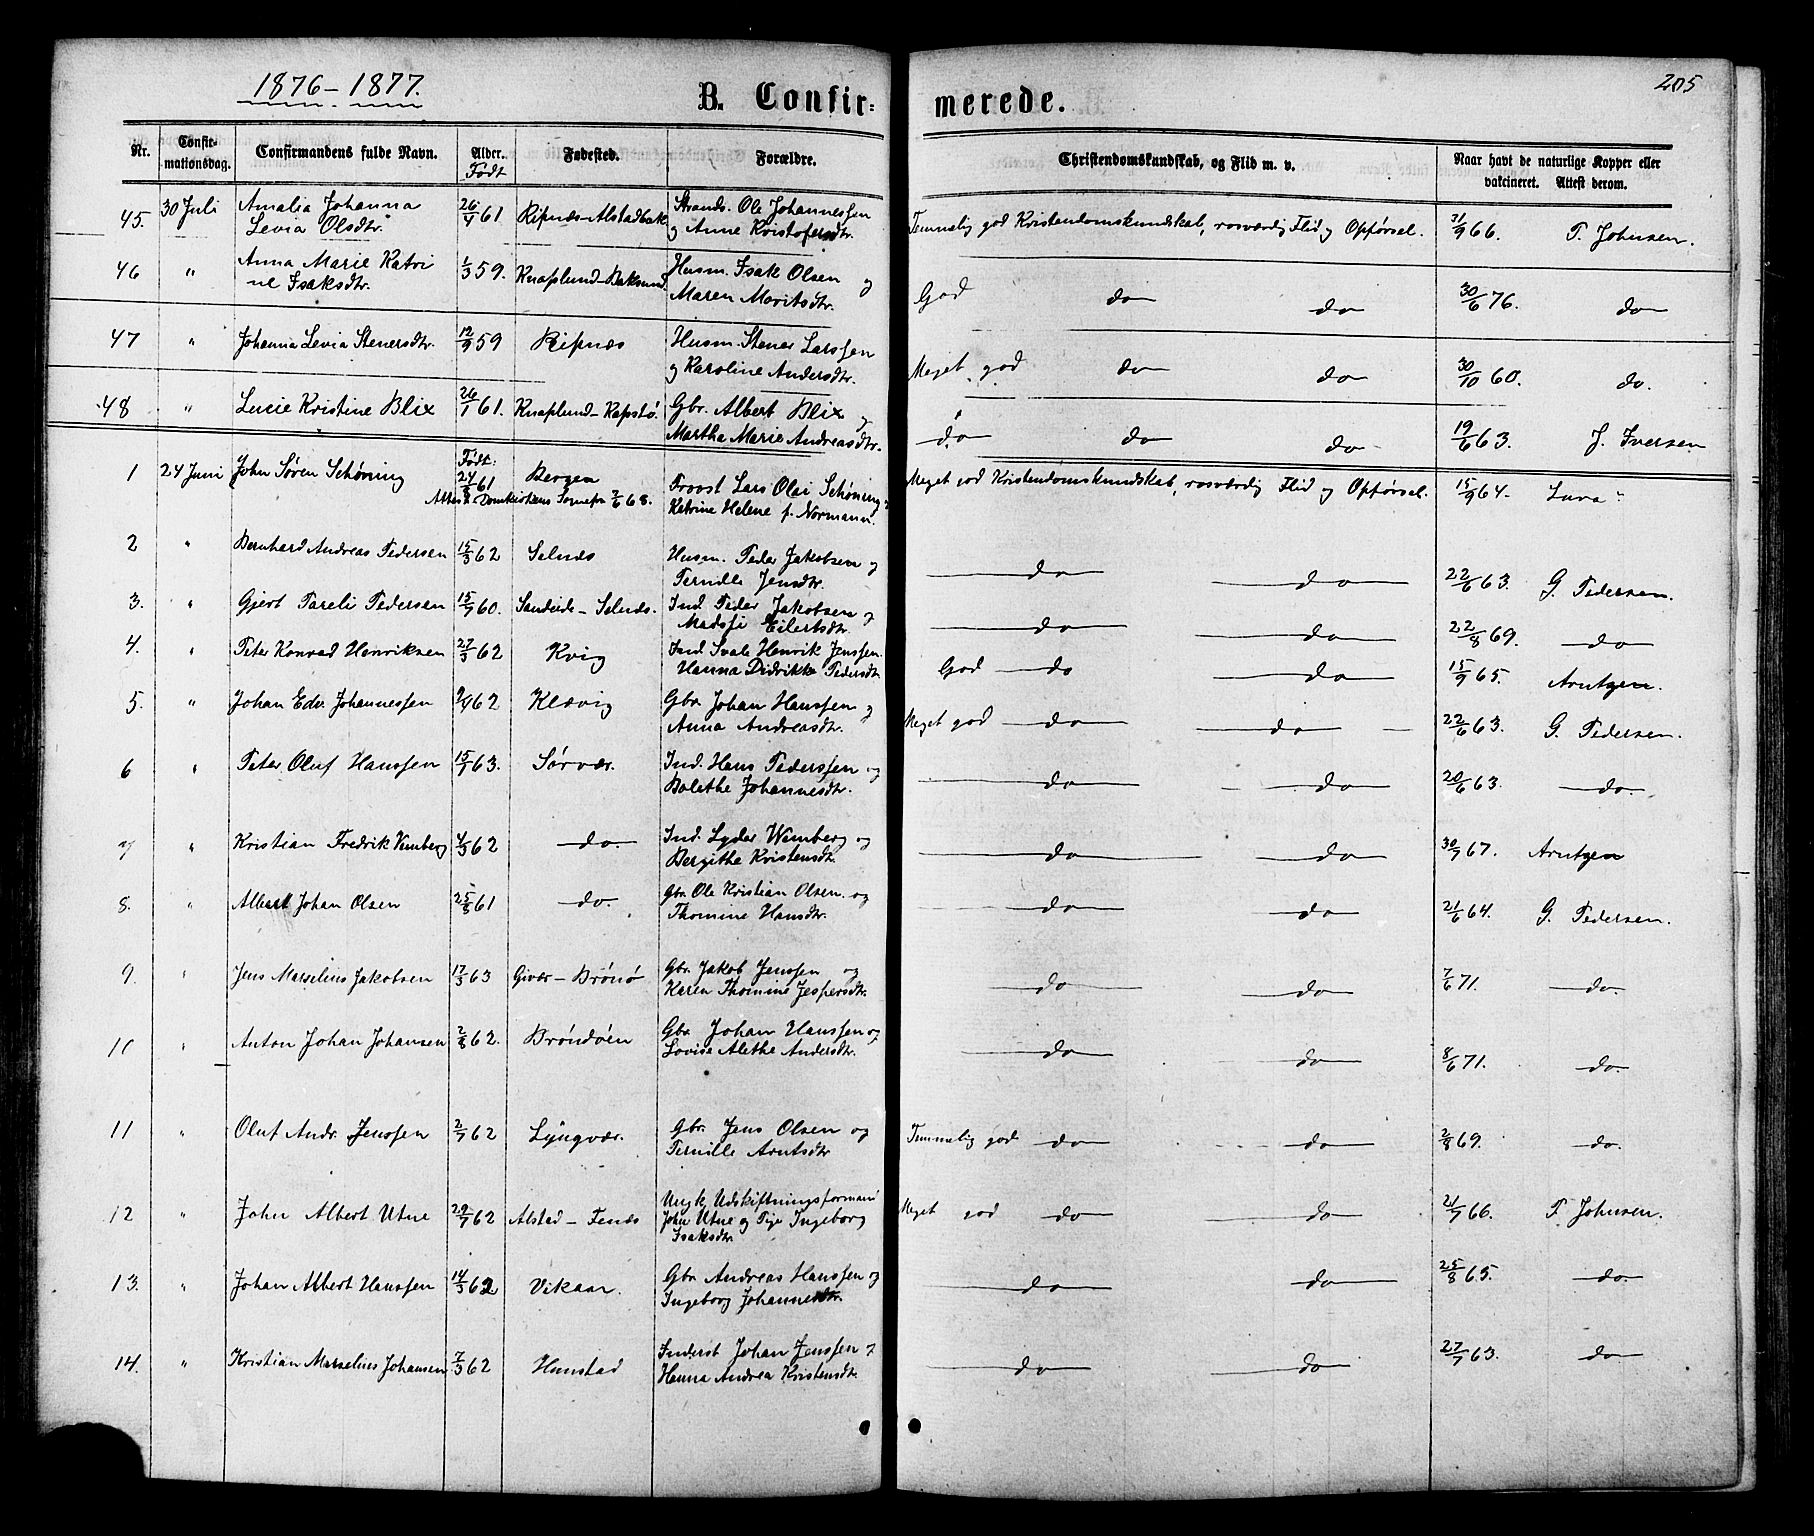 1876-1877.
B. Confirmerede.
205
Nr. Confirmationsdag. Confirmandens fulde Navn. Alder. Født Fødested. Forældre. Christendomskundskab, og Flid m. v. Naar havt de naturlige Kopper eller vakcineret. Attest derom.
45. 30 Juli Amalia Johanna Levia Olsdtr. 26/4 61 Ripnæs-Alstadbak. Strands. Ole Johannessen og Anne Kristofersdtr. Temmelig god Kristendomskundskab, rosværdig Flid og Opførsel. 21/9 66. T. Johnsen.
46 " Anna Marie Katrine Isaksdtr. 1/3 59. Knaplund-Baksund. Husm. Isak Olsen og Maren Moritsdtr. God do do 30/6 76. do
47 " Johanna Levia Stenersdtr. 12/9 59 Ripnæs Husm. Stener Larssen og Karoline Andersdtr. Meget god do do 30/10 60. do.
48 " Lucie Kristine Blix 26/1 61. Knaplund-Kapstø. Gbr. Albert Blix og Martha Marie Andreasdtr. do do do 19/6 63. J. Iversen
1 24 Juni John Søren Schøning Født: 24/8 61 Bergen Attest Domkirkens Sognepr 2/6 68. Provst Lars Olai Schøning Katrine Helene f. Normann. Meget god Kristendomskundskab, rosværdig Flid og Opførsel. 15/9 64.
2 " Bernhard Andreas Pedersen 15/3 62 Selnæs Husm. Peder Jakobsen og Pernille Jensdtr. do do 22/6 63. G. Pedersen.
3. " Gjert Pareli Pedersen 15/9 60. Sandeide-Selnæs. Ind. Peder Jakobsen og Madssi Eilertsdtr. do do 22/8 69. do
4. " Peter Konrad Henriksen 27/3 62 Kvig Ind. Svale Henrik Jenssen. Hanna Didrikke Pedersdtr. God do do 15/9 65. Arntzen.
5. " Johan Edv. Johannessen 2/4 62 Klævig Gbr. Johan Hanssen og Anna Andreasdtr. Meget god do do 22/6 63. G. Pedersen.
6 " Peter Oluf Hanssen 15/1 63. Sørvær. Ind. Hans Pederssen og Bolethe Johannesdtr. do do 20/6 63. do.
7 " Kristian Fredrik Wemberg 4/3 62 do. Ind. Lyder Wemberg og Bergithe Kristensdtr. do do 30/7 67. Arntzen
8. " Albert Johan Olsen 25/8 61 do. Gbr. Ole Kristian Olsen. og Thomine Hansdtr. do do 21/6 64. G. Pedersen.
9. " Jens Marselius Jakobsen 17/3 63 Givær-Brønø Gbr. Jakob Jenssen og Karen Thomine Jespersdtr. do do 7/6 71. do.
10 " Anton Johan Johansen 2/8 62. Brøndøen Gbr. Johan Hanssen og Lovise Alethe Andersdtr. do do 8/6 71. do.
11 " Oluf Andr. Jenssen 2/7 62 Lyngvær. Gbr. Jens Olsen og Pernille Arntsdtr Temmelig god do do 2/8 69. do.
12 " John Albert Utne 29/7 62 Alstad-Fenes Ungk. Udskiftningsformand John Utne og Pige Ingeborg Isaksdtr. Meget god do do 21/7 66. T. Johnsen.
13. " Johan Albert Hanssen 14/3 62 Vikaan. Gbr. Andreas Hanssen og Ingeborg Johannesdtr. do do 25/8 65. do.
14. " Kristian Marselius Johansen 7/3 62 Hunstad Inderst Johan Jenssen og Hanna Andrea Kristensdtr. do do 27/7 63. do